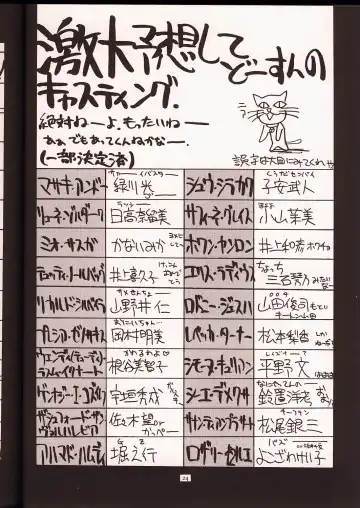 激大予想して
どーすんの
キャスティング.
絶対ねーよ.もったいねー
あぁでもあってくんねかなー.
(一部決定済)
誤字は大目にみてくれや
マサキ・アンドー 緑川光
シュウ・シラカワ 子安武人
リューネ・ゾルダーク 日高奈留美
サフィーネ・グレイス 小山茉美
ミオ・サスガ かないみか
ホワン・ヤンロン 井上和彦
テュッティ・ノールバック 井上喜久子
エリス・ラディウス 三石琴乃
リカルド・シルベイラ 山野井仁
ロドニー・ジェスハ 山田俊司
プレシア・ゼノサキス 岡本明美
レベッカ・ターナー 松本梨香
ウェンディ・ラスム・イクナート 根谷美智子
シモーヌ・キュリアン 平野文
ゲンナジー・I・コズイレフ 宇垣秀成
シュエデメクサ 鈴置洋孝
ザシュフォード・ザン・ヴァルハレビア 佐々木望or
松尾銀三
アハマド・ハムディ 堀之行
ロザリー・セルエ よこざわけい子
24